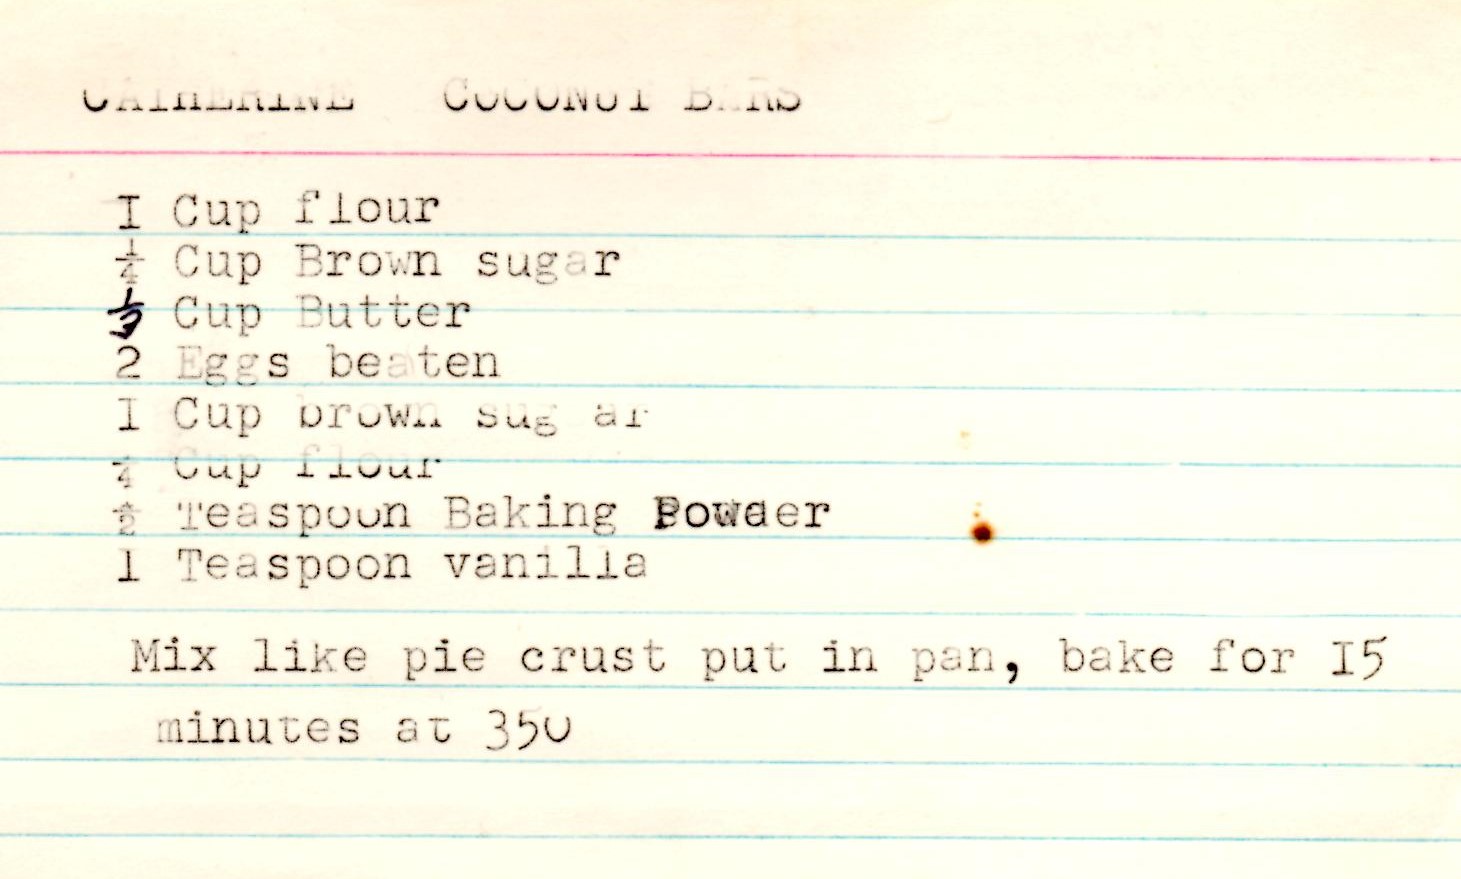 CATHERINE COCONUT BARS
I Cup flour
1/4 Cup Brown sugar
1/3 Cup Butter
2 Eggs beaten
I Cup brown sug ar
1/4 Cup flour
1/2 Teaspoon Baking Powder
1 Teaspoon vanilla
Mix like pie crust put in pan, bake for I5
minutes at 350